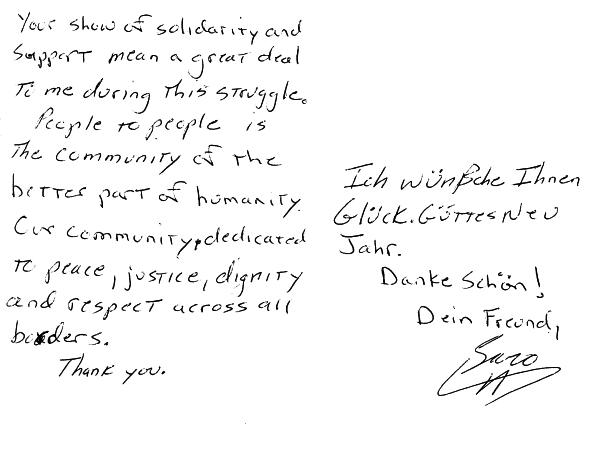 Your show of solidarity and
support mean a great deal
to me during this struggle.
People to people is
the community of the
better part of humanity.
Our community, dedicated
to peace, justice, dignity
and respect across all
borders.
Thank you.
Ich wünßche Ihnen
Glück. Güttes Neu
Jahr.
Danke Schön!
Dein Freund,